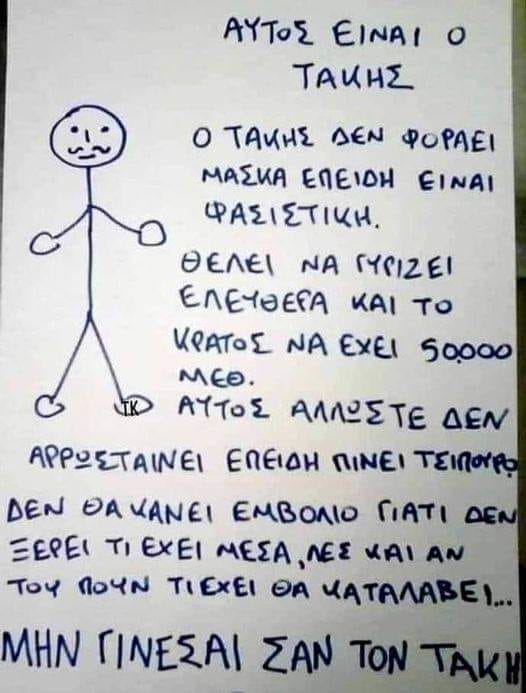 ΑΥΤΟΣ ΕΙΝΑΙ Ο
ΤΑΚΗΣ
Ο ΤΑΚΗΣ ΔΕΝ ΦΟΡΑΕΙ
ΜΑΣΚΑ ΕΠΕΙΔΗ ΕΙΝΑΙ
ΦΑΣΙΣΤΙΚΗ.
ΘΕΛΕΙ ΝΑ ΓΥΡΙΖΕΙ
ΕΛΕΥΘΕΡΑ ΚΑΙ ΤΟ
ΚΡΑΤΟΣ ΝΑ ΕΧΕΙ 50,000
ΜΕΘ.
ΤΚ
ΑΥΤΟΣ ΑΛΛΩΣΤΕ ΔΕΝ
ΑΡΡΩΣΤΑΙΝΕΙ ΕΠΕΙΔΗ ΠΙΝΕΙ ΤΣΙΠΟΥΡΟ
ΔΕΝ ΘΑ ΚΑΝΕΙ ΕΜΒΟΛΙΟ ΓΙΑΤΙ ΔΕΝ
ΞΕΡΕΙ ΤΙ ΕΧΕΙ ΜΕΣΑ, ΛΕΣ ΚΑΙ ΑΝ
ΤΟΥ ΠΟΥΝ ΤΙ ΕΧΕΙ ΘΑ ΚΑΤΑΛΑΒΕΙ...
ΜΗΝ ΓΙΝΕΣΑΙ ΣΑΝ ΤΟΝ ΤΑΚΗ